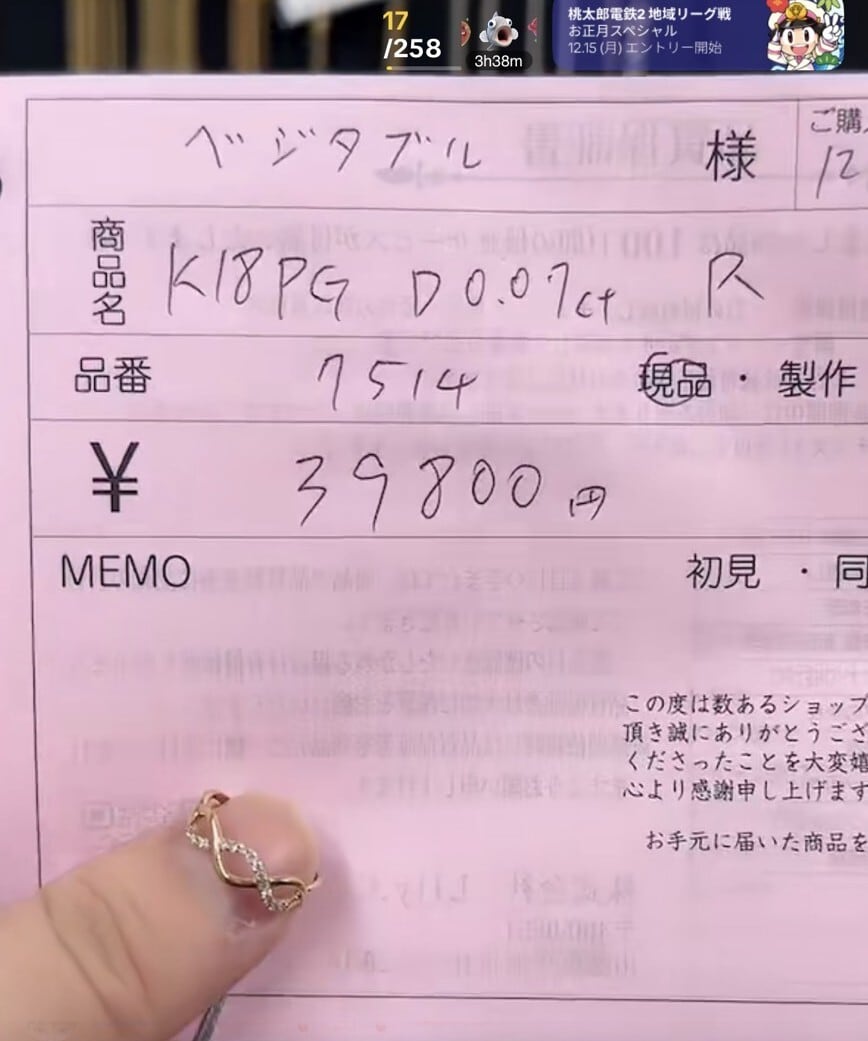 17
/258
3h38m
桃太郎電鉄2 地域リーグ戦
お正月スペシャル
12.15 (月) エントリー開始
ベジタブル 様
ご購
12
商品名 K18PG D0.07ct R
品番 7514 現品・製作
¥ 39800円
MEMO 初見・同
この度は数あるショップ
頂き誠にありがとうござ
くださったことを大変嬉
心より感謝申し上げます
お手元に届いた商品を